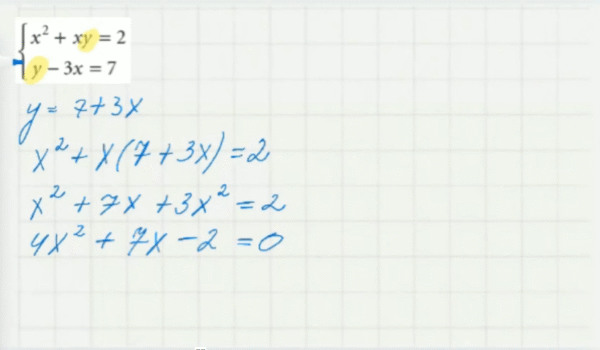 x² + xy = 2
y – 3x = 7
y = 7+3x
x² + x(7+3x)=2
x² + 7x +3x² = 2
4x² + 7x -2 =0